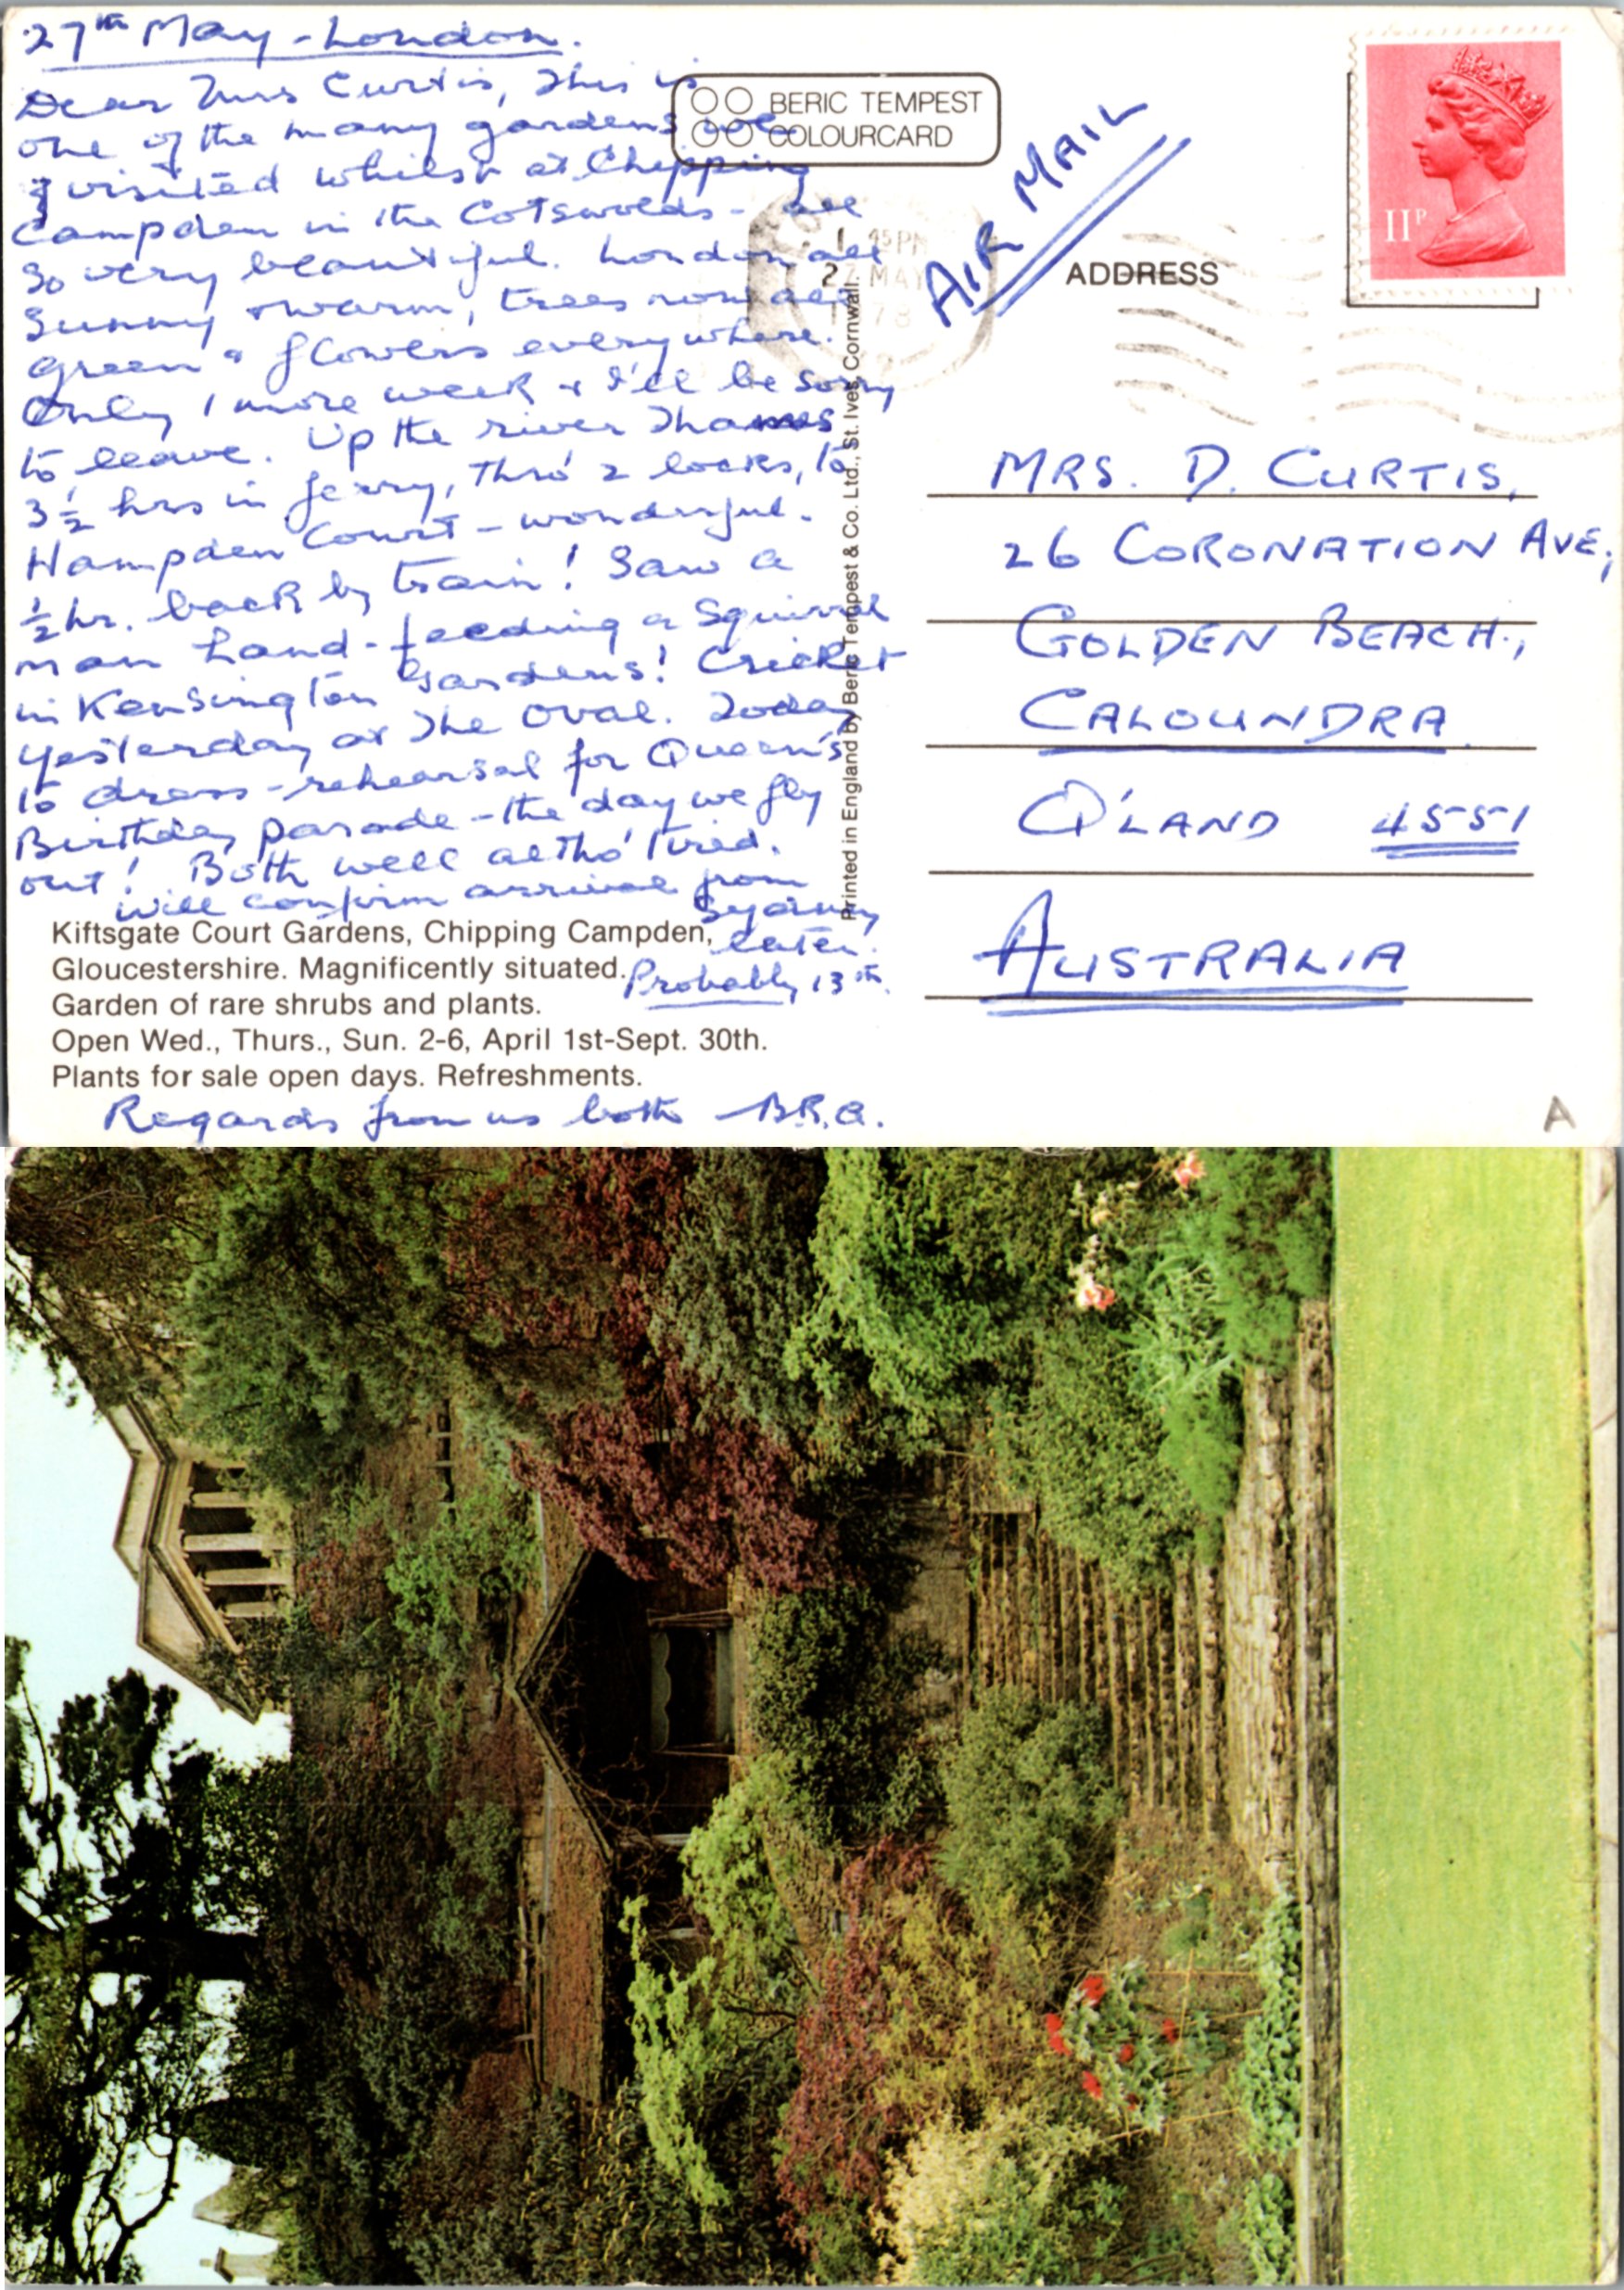 27th May - London.
Dear Mrs Curtis, This is
one of the many gardens we
visited whilst at Chipping
Campden in the Cotswolds - all
so very beautiful. London all
sunny & warm, trees now all
green & flowers everywhere.
Only 1 more week & I'll be sorry
to leave. Up the river Thames
3½ hrs in ferry, thro' 2 locks, to
Hampden Court - wonderful.
½ hr. back by train! Saw a
man hand-feeding a squirrel
in Kensington Gardens! Cricket
yesterday at The Oval. Today
to dress-rehearsal for Queen's
Birthday parade - the day we fly
out! Both well altho' tired.
Will confirm arrival from
Sydney
later.
Probably 13th.
Kiftsgate Court Gardens, Chipping Campden,
Gloucestershire. Magnificently situated.
Garden of rare shrubs and plants.
Open Wed., Thurs., Sun. 2-6, April 1st-Sept. 30th.
Plants for sale open days. Refreshments.
Regards from us both - B.R.Q.
BERIC TEMPEST
COLOURCARD
Printed in England by Beric Tempest & Co. Ltd., St. Ives, Cornwall.
AIR MAIL
1 45PM
27 MAY
1978
11P
ADDRESS
MRS. D. CURTIS,
26 CORONATION AVE,
GOLDEN BEACH,
CALOUNDRA.
Q'LAND 4551
AUSTRALIA
A